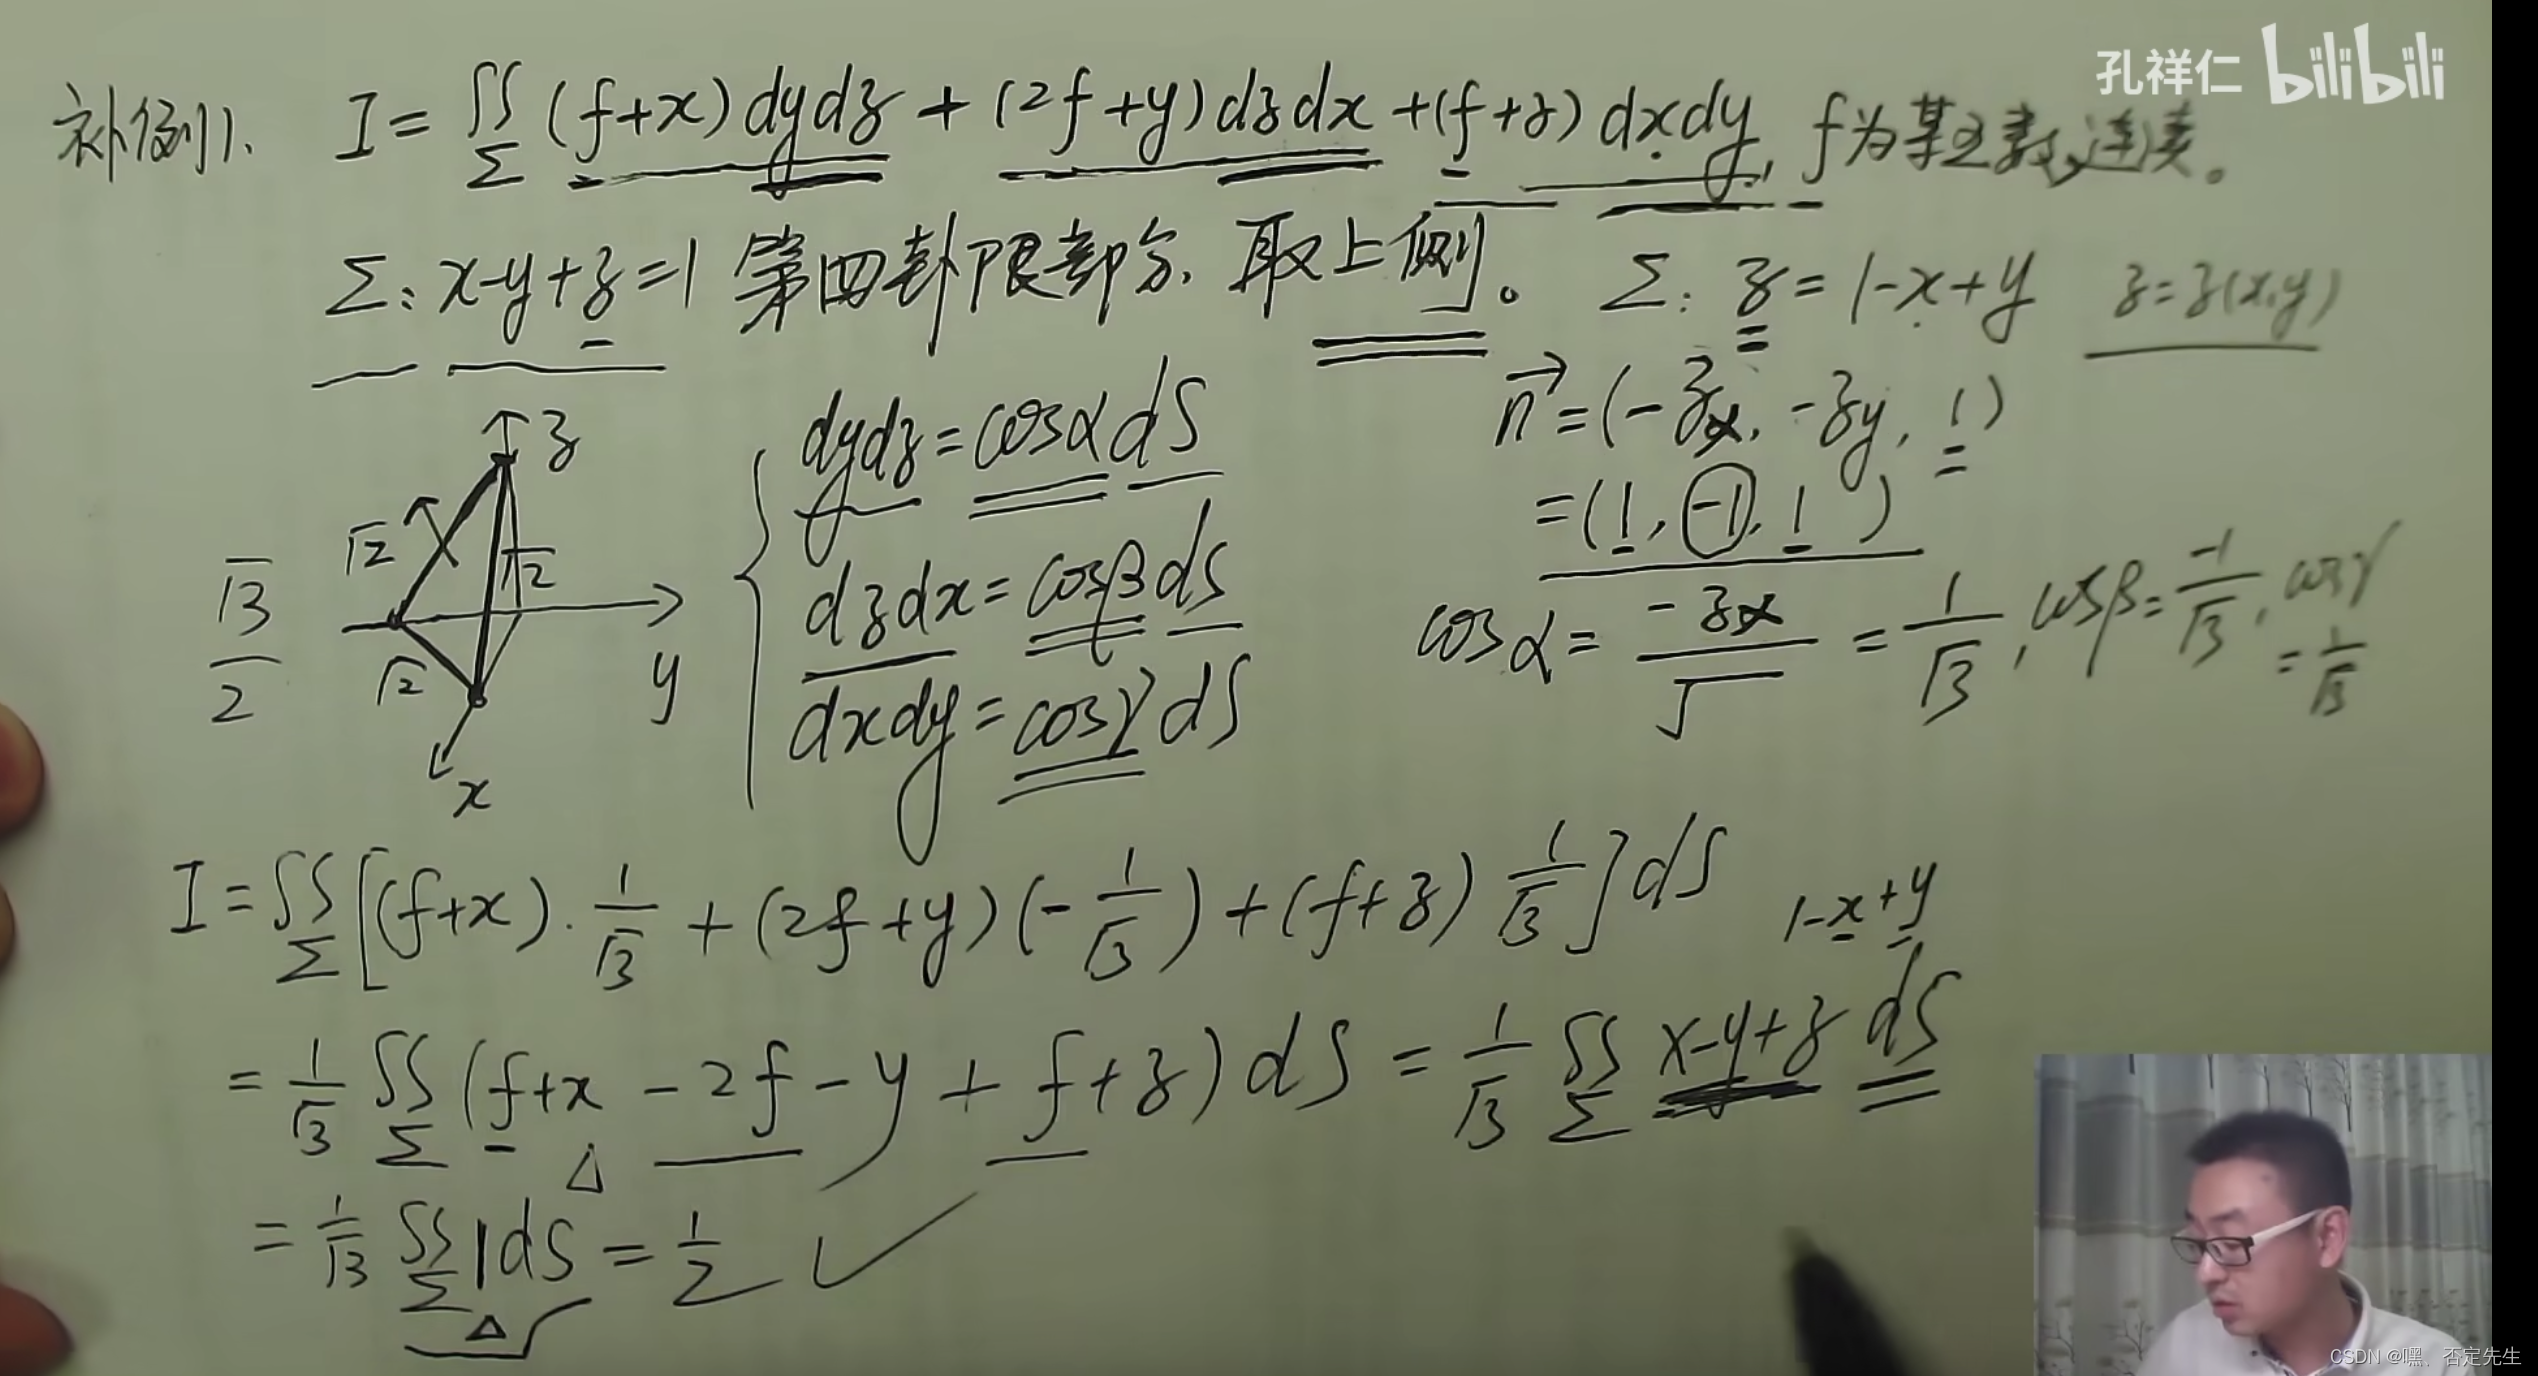 孔祥仁 bilibili
补例1. I = ∬_Σ (f+x) dydz + (2f+y) dzdx + (f+z) dxdy, f为某函数,连续。
Σ: x-y+z=1 第四卦限部分, 取上侧。 Σ: z = 1-x+y z=z(x,y)
n⃗ = (-z_x, -z_y, 1)
= (1, -1, 1)
z
√2
√2
√2
y
x
√3/2
dydz = cosα dS
dzdx = cosβ dS
dxdy = cosγ dS
cosα = -z_x/√ = 1/√3, cosβ = -1/√3, cosγ = 1/√3
I = ∬_Σ [(f+x)·1/√3 + (2f+y)(-1/√3) + (f+z) 1/√3] dS
1-x+y
= 1/√3 ∬_Σ (f+x -2f -y + f+z) dS = 1/√3 ∬_Σ x-y+z dS
△
= 1/√3 ∬_Σ 1dS = 1/2 ✓
△
CSDN @嘿、否定先生